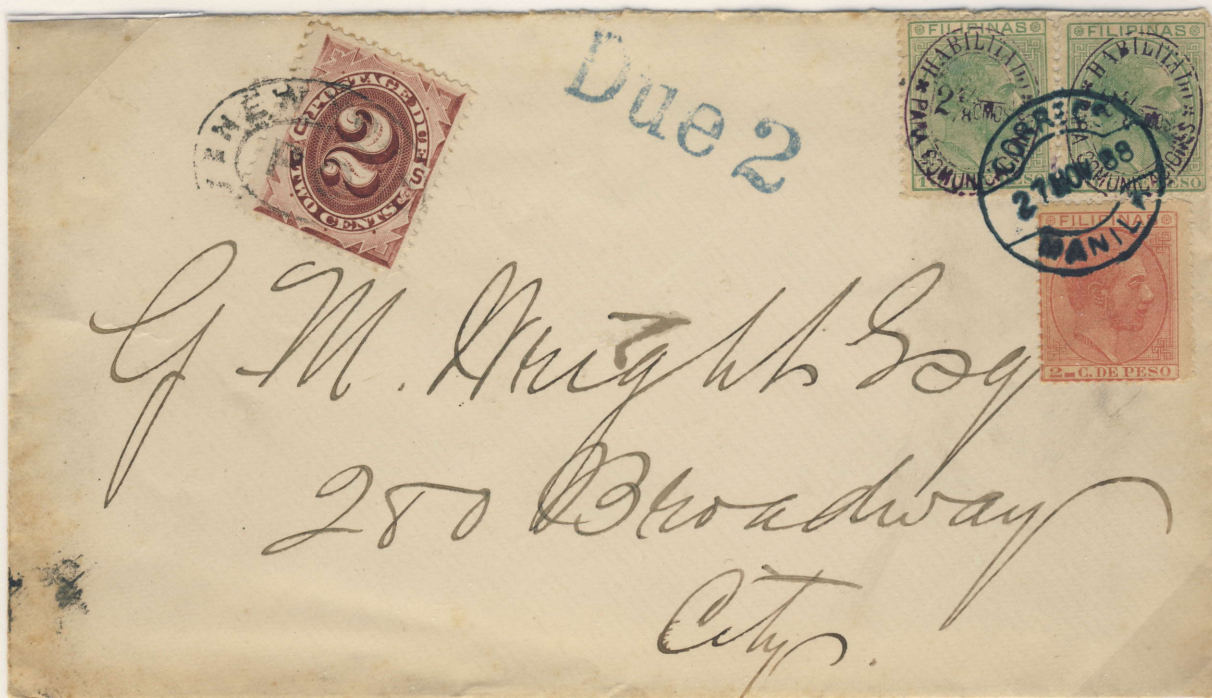 POSTAGE DUE
2
TWO CENTS
Due 2
FILIPINAS
HABILITADO
PARA COMUNICACIONES
FILIPINAS
HABILITADO
COMUNICACIONES
PESO
CORREOS
27 NOV 88
MANILA
FILIPINAS
2 C. DE PESO
G M. Wright Esq
280 Broadway
City.